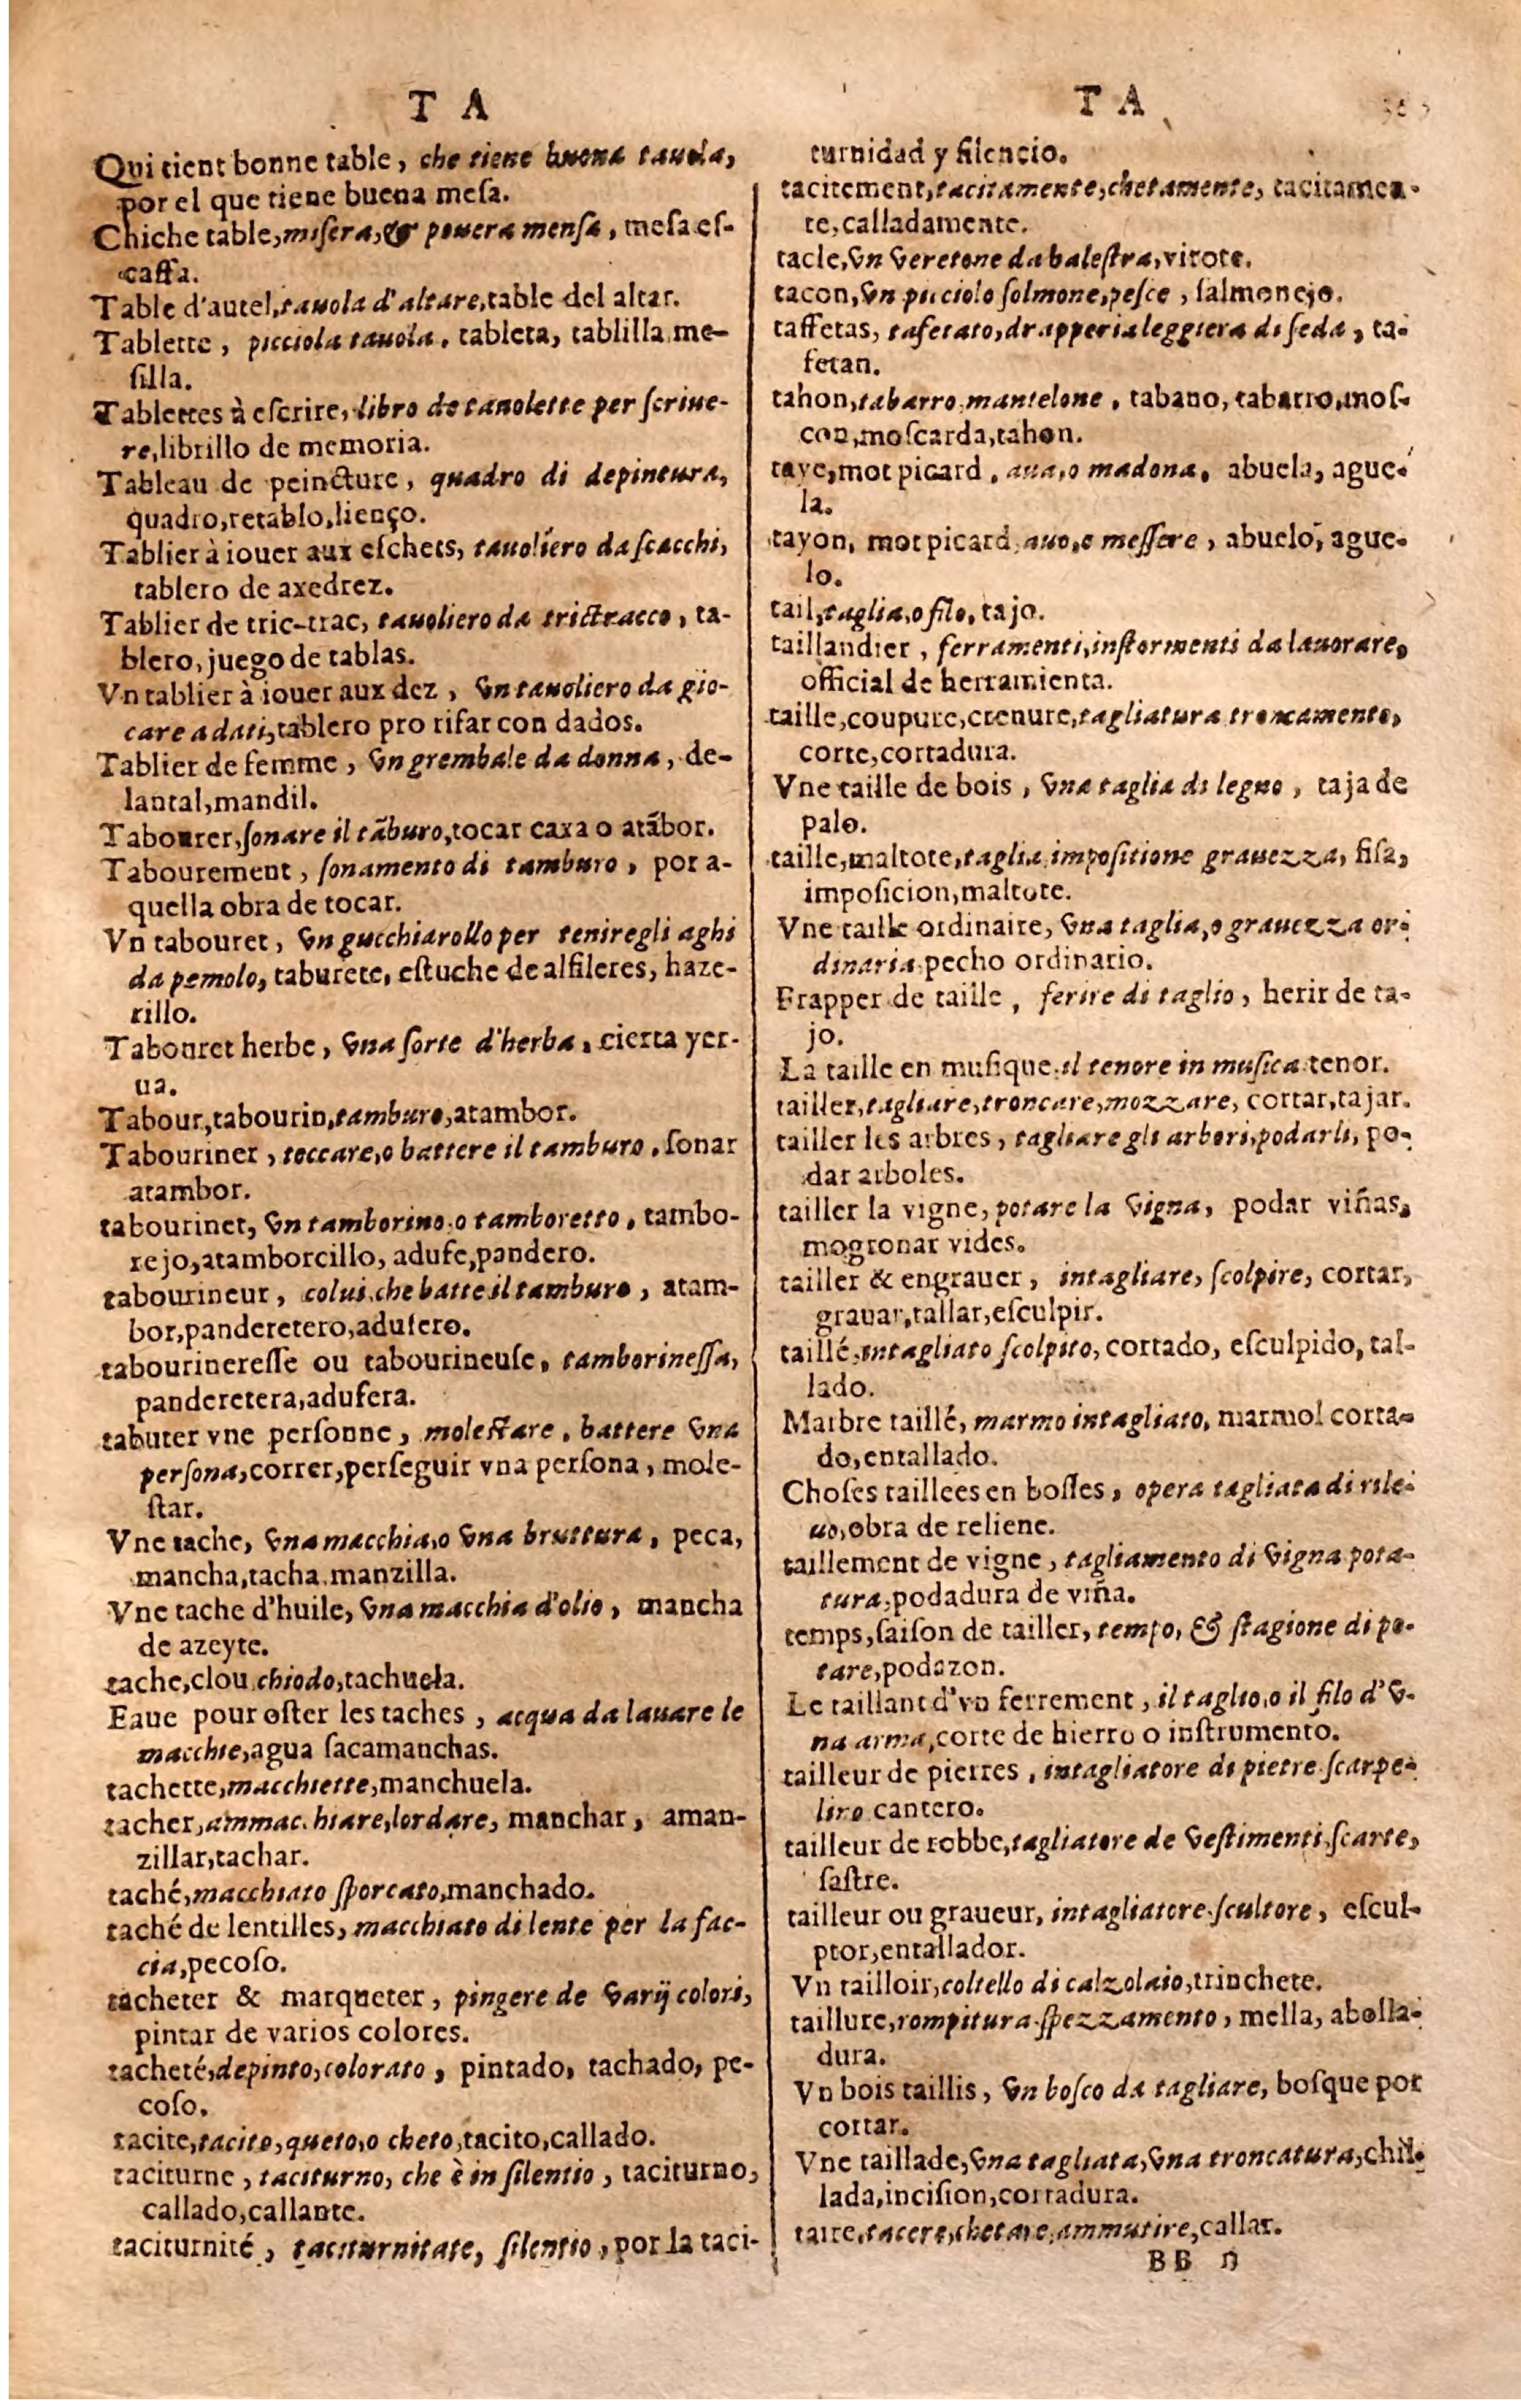 T A
Qui tient bonne table, che tiene buona tauola,
por el que tiene buena mesa.
Chiche table, misera, & pouera mensa, mesa es-
cassa.
Table d'autel, tauola d'altare, table del altar.
Tablette, picciola tauola, tableta, tablilla, me-
silla.
Tablettes à escrire, libro de tauolette per scriue-
re, librillo de memoria.
Tableau de peincture, quadro di depintura,
quadro, retablo, lienço.
Tablier à iouer aux eschets, tauoliero da scacchi,
tablero de axedrez.
Tablier de tric-trac, tauoliero da trictracco, ta-
blero, juego de tablas.
Vn tablier à iouer aux dez, vn tauoliero da gio-
care a dati, tablero pro rifar con dados.
Tablier de femme, vn grembale da donna, de-
lantal, mandil.
Tabourer, sonare il tãburo, tocar caxa o atãbor.
Tabourement, sonamento di tamburo, por a-
quella obra de tocar.
Vn tabouret, vn gucchiarollo per tenire gli aghi
da pemolo, taburete, estuche de alfileres, haze-
rillo.
Tabouret herbe, vna sorte d'herba, cierta yer-
ua.
Tabour, tabourin, tamburo, atambor.
Tabouriner, toccare, o battere il tamburo, sonar
atambor.
tabourinet, vn tamborino, o tamboretto, tambo-
rejo, atamborcillo, adufe, pandero.
tabourineur, colui, che batte il tamburo, atam-
bor, panderetero, adufero.
tabourineresse ou tabourineuse, tamborinessa,
panderetera, adufera.
tabuter vne personne, molestare, battere vna
persona, correr, perseguir vna persona, mole-
star.
Vne tache, vna macchia, o vna bruttura, peca,
mancha, tacha, manzilla.
Vne tache d'huile, vna macchia d'olio, mancha
de azeyte.
tache, clou, chiodo, tachuela.
Eaue pour oster les taches, acqua da lauare le
macchie, agua sacamanchas.
tachette, macchiette, manchuela.
tacher, ammacchiare, lordare, manchar, aman-
zillar, tachar.
taché, macchiato sporcato, manchado.
taché de lentilles, macchiato di lente per la fac-
cia, pecoso.
tacheter & marqueter, pingere de varij colori,
pintar de varios colores.
tacheté, depinto, colorato, pintado, tachado, pe-
coso.
tacite, tacito, queto, o cheto, tacito, callado.
taciturne, taciturno, che è in silentio, taciturno,
callado, callante.
taciturnité, taciturnitate, silentio, por la taci-
T A
turnidad y silencio.
tacitement, tacitamente, chetamente, tacitamen-
te, calladamente.
tacle, vn veretone da balestra, virote.
tacon, vn picciolo solmone, pesce, salmonejo.
taffetas, tafetato, drapperia leggiera di seda, ta-
fetan.
tahon, tabarro, mantelone, tabano, tabarro, mos-
con, moscarda, tahon.
taye, mot picard, aua, o madona, abuela, ague-
la.
tayon, mot picard, auo, o messere, abuelo, ague-
lo.
tail, taglia, o filo, tajo.
taillandier, ferramenti, instormenti da lauorare,
official de herramienta.
taille, coupure, crenure, tagliatura troncamento,
corte, cortadura.
Vne taille de bois, vna taglia di legno, taja de
palo.
taille, maltote, taglia, impositione grauezza, sisa,
imposicion, maltote.
Vne taille ordinaire, vna taglia, o grauezza or-
dinaria, pecho ordinario.
Frapper de taille, ferire di taglio, herir de ta-
jo.
La taille en musique, il tenore in musica tenor.
tailler, tagliare, troncare, mozzare, cortar, tajar.
tailler les arbres, tagliare gli arbori, podarli, po-
dar arboles.
tailler la vigne, potare la vigna, podar viñas,
mogronar vides.
tailler & engrauer, intagliare, scolpire, cortar,
grauar, tallar, esculpir.
taillé, intagliato scolpito, cortado, esculpido, tal-
lado.
Marbre taillé, marmo intagliato, marmol corta-
do, entallado.
Choses taillees en bosses, opera tagliata di rile-
uo, obra de reliene.
taillement de vigne, tagliamento di vigna pota-
tura, podadura de viña.
temps, saison de tailler, tempo, & stagione di po-
tare, podazon.
Le taillant d'vn ferrement, il taglio, o il filo d'v-
na arma, corte de hierro o instrumento.
tailleur de pierres, intagliatore di pietre scarpe-
liro cantero.
tailleur de robbe, tagliatore de vestimenti, scarte,
sastre.
tailleur ou graueur, intagliatore scultore, escul-
ptor, entallador.
Vn tailloir, coltello di calzolaio, trinchete.
taillure, rompitura spezzamento, mella, abolla-
dura.
Vn bois taillis, vn bosco da tagliare, bosque por
cortar.
Vne taillade, vna tagliata, vna troncatura, chil-
lada, incision, cortadura.
taire, tacere, chetare, ammutire, callar.
BB